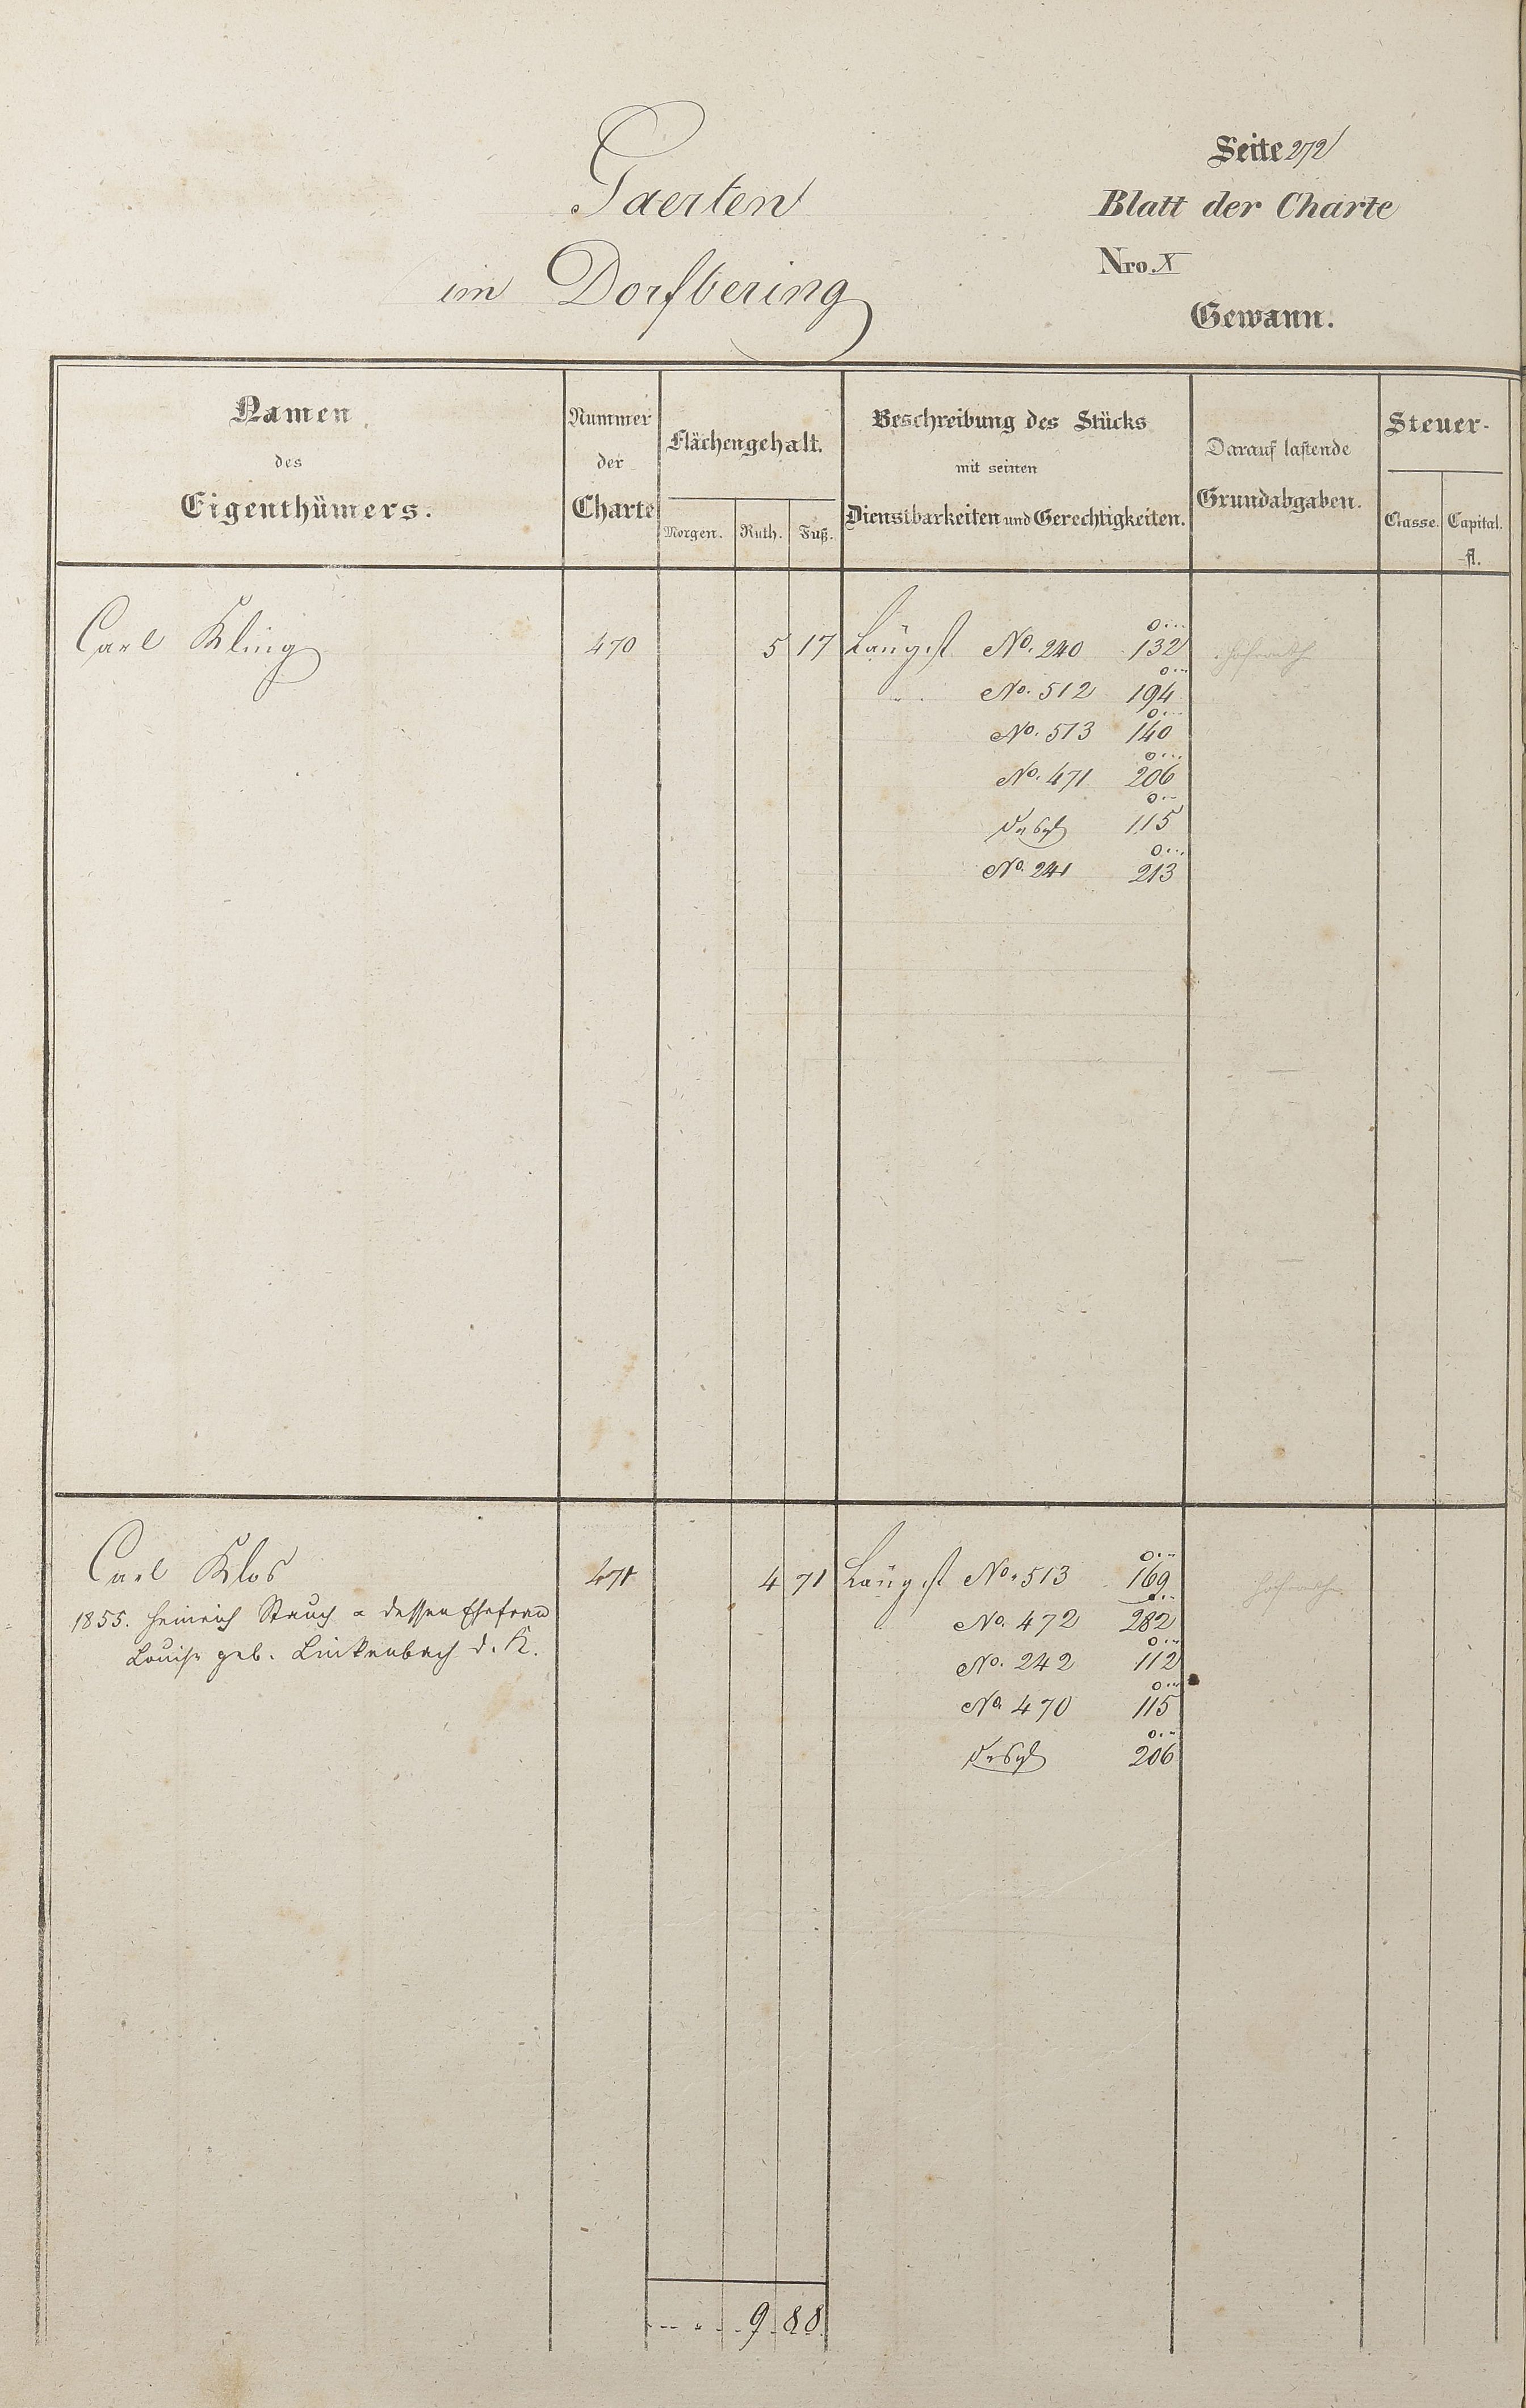 Gaerten
im Dorfbering
Seite 272
Blatt der Charte
Nro. X
Gewann.
Namen
des
Eigenthümers.
Nummer
der
Charte
Flächengehalt.
Morgen. Ruth. Fuß.
Beschreibung des Stücks
mit seinen
Dienstbarkeiten und Gerechtigkeiten.
Darauf lastende
Grundabgaben.
Steuer-
Classe. Capital.
fl.
Carl Kling 470 5 17 Längst No. 240 132 Hofraith
No. 512 194
No. 513 140
No. 471 206
Desgl 115
No. 241 213
Carl Klos 471 4 71 Längst No. 513 169 Hofraith
1855. Heinrich Stauch & dessen Ehefrau
No. 472 282
Louise geb. Linkenbach d. K.
No. 242 112
No. 470 115
Desgl 206
9 88